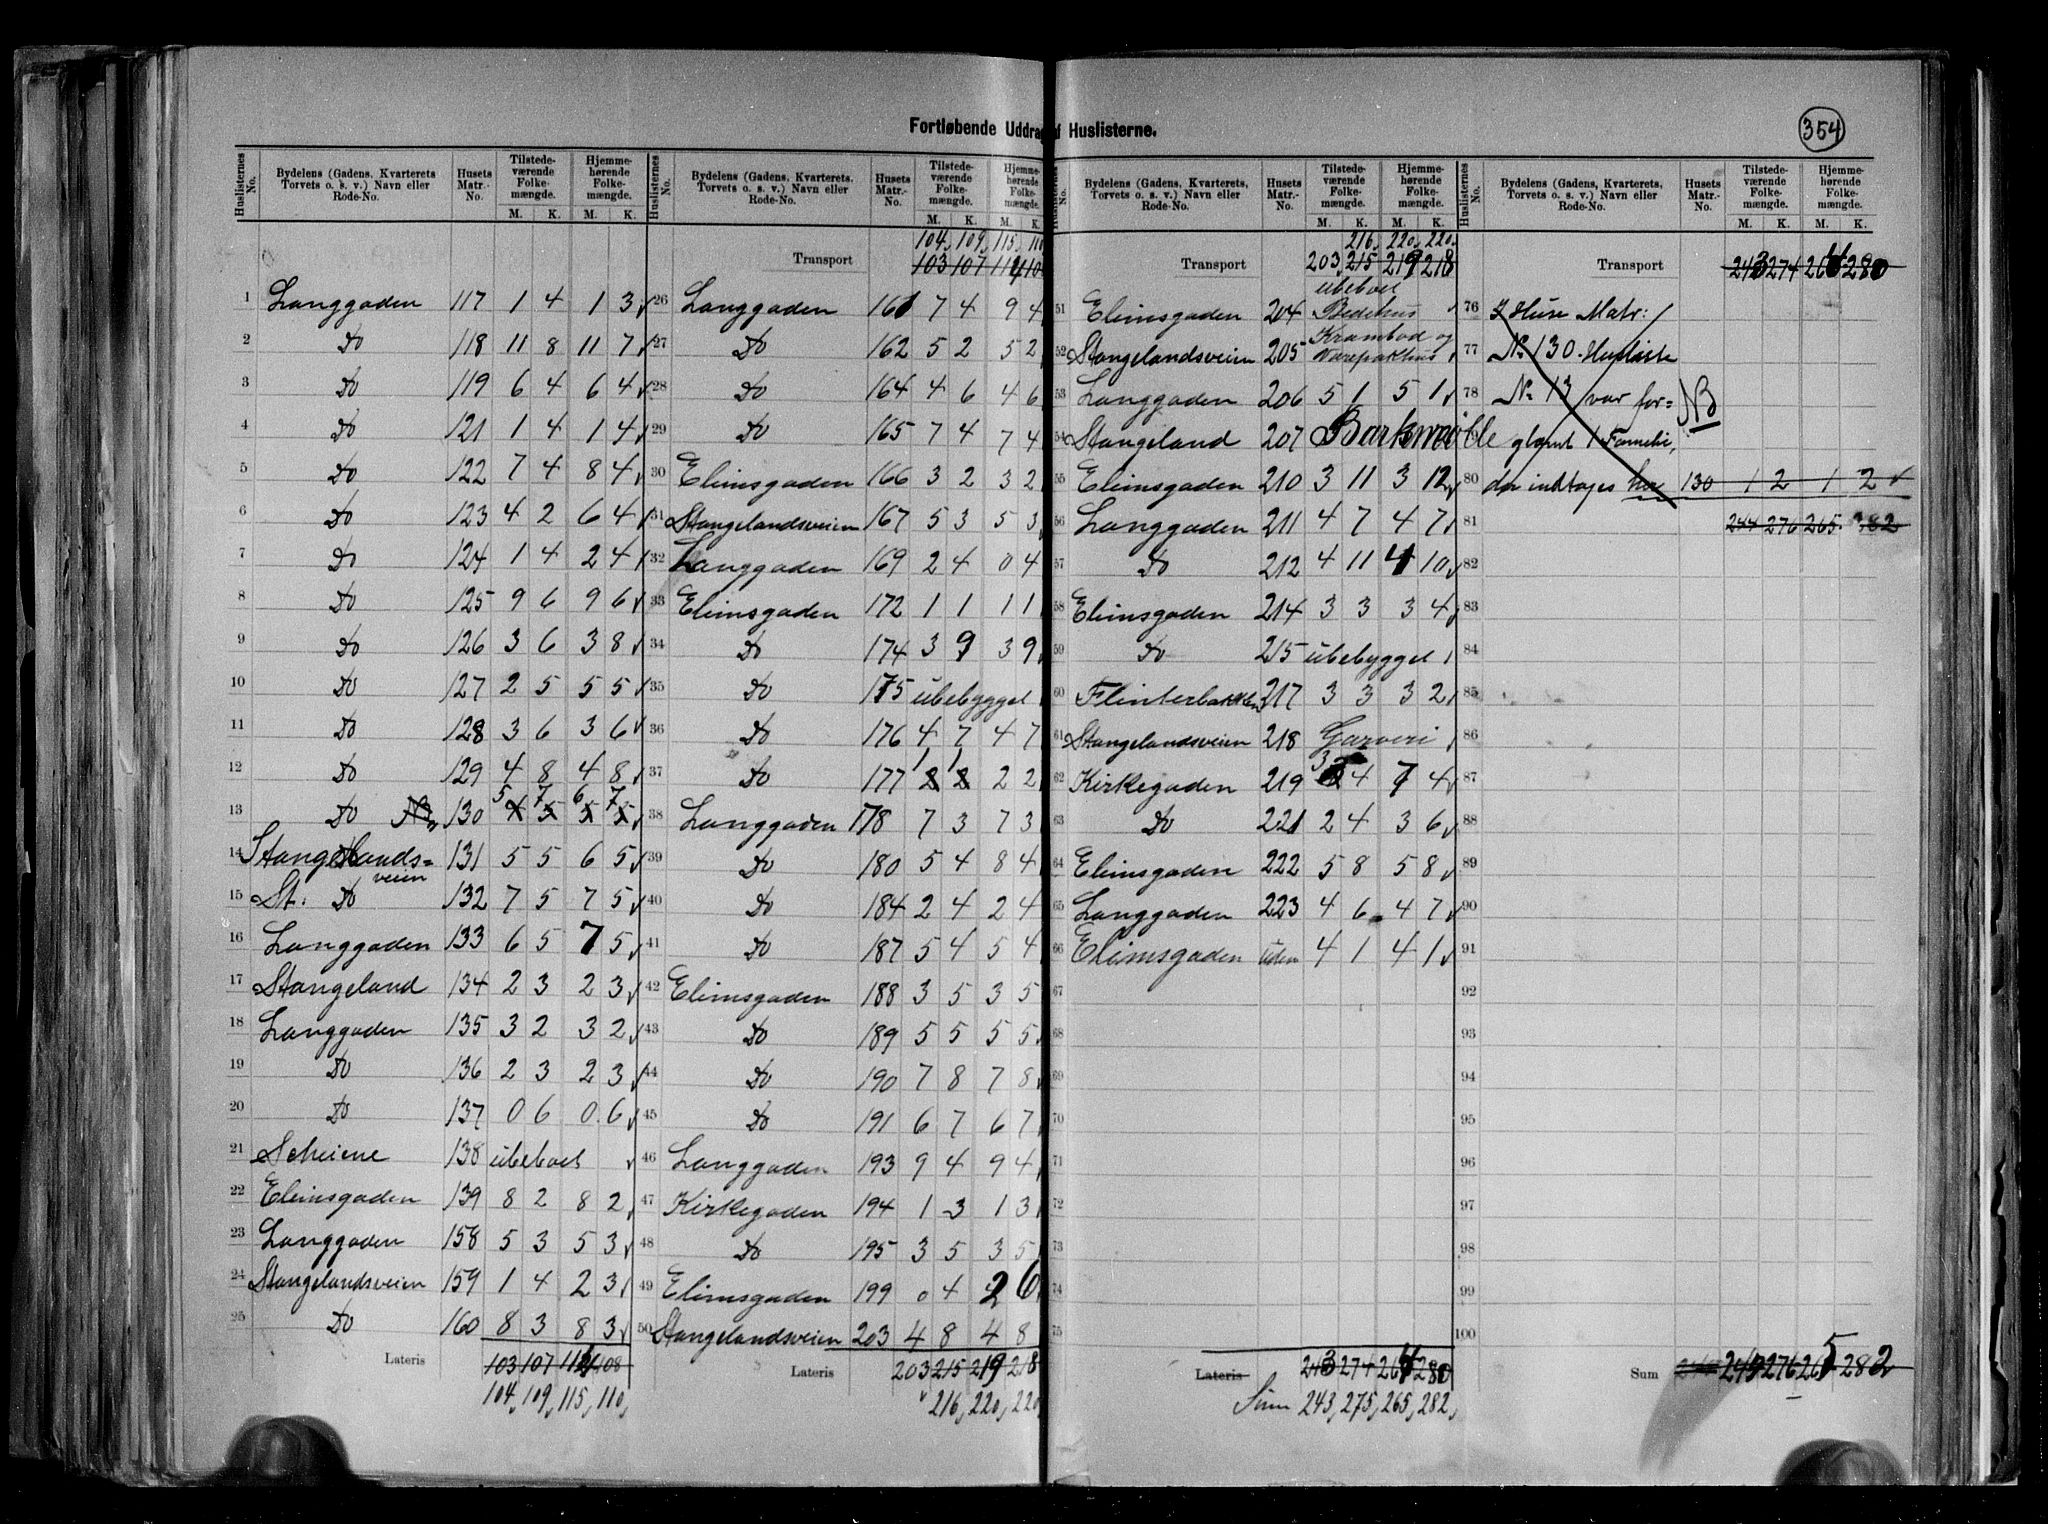 354
Fortløbende Uddrag af Huslisterne.
Huslisternes No. | Bydelens (Gadens, Kvarterets, Torvets o. s. v.) Navn eller Rode-No. | Husets Matr.-No. | Tilstedeværende Folkemængde. M. K. | Hjemmehørende Folkemængde. M. K.
1 Langgaden 117 1 4 1 3
2 Do 118 11 8 11 7
3 Do 119 6 4 6 4
4 Do 121 1 4 1 4
5 Do 122 7 4 8 4
6 Do 123 4 2 6 4
7 Do 124 1 4 2 4
8 Do 125 9 6 9 6
9 Do 126 3 6 3 8
10 Do 127 2 5 5 5
11 Do 128 3 6 3 6
12 Do 129 4 8 4 8
5 7 6 7
13 Do NB 130 4 5 5 5
14 Stangelands=veien 131 5 5 6 5
15 St. Do 132 7 5 7 5
16 Langgaden 133 6 5 7 5
17 Stangeland 134 2 3 2 3
18 Langgaden 135 3 2 3 2
19 Do 136 2 3 2 3
20 Do 137 0 6 0 6
21 Scheiene 138 ubeboet
22 Elimsgaden 139 8 2 8 2
23 Langgaden 158 5 3 5 3
24 Stangelandsveien 159 1 4 2 3
25 Do 160 8 3 8 3
Lateris 103 107 114 108
104, 109, 115, 110,
Huslisternes No. | Bydelens (Gadens, Kvarterets, Torvets o. s. v.) Navn eller Rode-No. | Husets Matr.-No. | Tilstedeværende Folkemængde. M. K. | Hjemmehørende Folkemængde. M. K.
104, 109, 115, 110
Transport 103 107 114 10
26 Langgaden 161 7 4 9 4
27 Do 162 5 2 5 2
28 Do 164 4 6 4 6
29 Do 165 7 4 7 4
30 Elimsgaden 166 3 2 3 2
31 Stangelandsveien 167 5 3 5 3
32 Langgaden 169 2 4 0 4
33 Elimsgaden 172 1 1 1 1
34 Do 174 3 9 3 9
35 Do 175 ubebygget
36 Do 176 4 7 4 7
1 1
37 Do 177 2 2 2 2
38 Langgaden 178 7 3 7 3
39 Do 180 5 4 8 4
40 Do 184 2 4 2 4
41 Do 187 5 4 5 4
42 Elimsgaden 188 3 5 3 5
43 Do 189 5 5 5 5
44 Do 190 7 8 7 8
45 Do 191 6 7 6 7
46 Langgaden 193 9 4 9 4
47 Kirkegaden 194 1 3 1 3
48 Do 195 3 5 3 5
49 Elimsgaden 199 0 4 2 6
50 Stangelandsveien 203 4 8 4 8
Lateris 203 215 219 218
216, 220, 220
Bydelens (Gadens, Kvarterets, Torvets o. s. v.) Navn eller Rode-No. | Husets Matr.-No. | Tilstedeværende Folkemængde. M. K. | Hjemmehørende Folkemængde. M. K.
216, 220, 220,
Transport 203, 215 219 218
ubeboet
51 Elimsgaden 204 Bedehus
52 Stangelandsveien 205 Krambod og Varepakhus
53 Langgaden 206 5 1 5 1
54 Stangeland 207 Barkmølle
55 Elimsgaden 210 3 11 3 12
56 Langgaden 211 4 7 4 7
57 Do 212 4 11 4 10
58 Elimsgaden 214 3 3 3 4
59 Do 215 ubebygget
60 Flinterbakken 217 3 3 3 2
61 Stangelandsveien 218 Garveri
62 Kirkegaden 219 3 4 7 4
63 Do 221 2 4 3 6
64 Elimsgaden 222 5 8 5 8
65 Langgaden 223 4 6 4 7
66 Elimsgaden uden 4 1 4 1
67
68
69
70
71
72
73
74
75
Lateris 243 274 264 280
Sum 243, 275, 265, 282,
Huslisternes No. | Bydelens (Gadens, Kvarterets, Torvets o. s. v.) Navn eller Rode-No. | Husets Matr.-No. | Tilstedeværende Folkemængde. M. K. | Hjemmehørende Folkemængde. M. K.
Transport 243 274 264 280
76 I Huse Matr:
77 No 130. Husliste
78 No 13 var for= NB
79 glemt 1 Familie,
80 der indtages her 130 1 2 1 2
81 244 276 265. 282
82
83
84
85
86
87
88
89
90
91
92
93
94
95
96
97
98
99
100
Sum 276 265 282